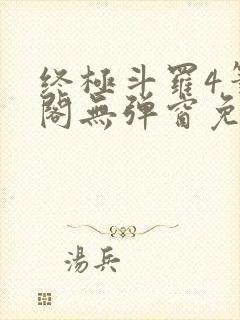 终極斗羅4
閣無弹窗免
湯兵